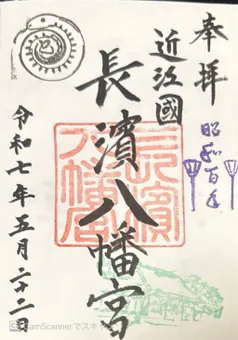 奉拝
昭和百年
近江國
長濱八幡宮
長濱八幡宮
令和七年五月二十二日
CamScannerでスキャン